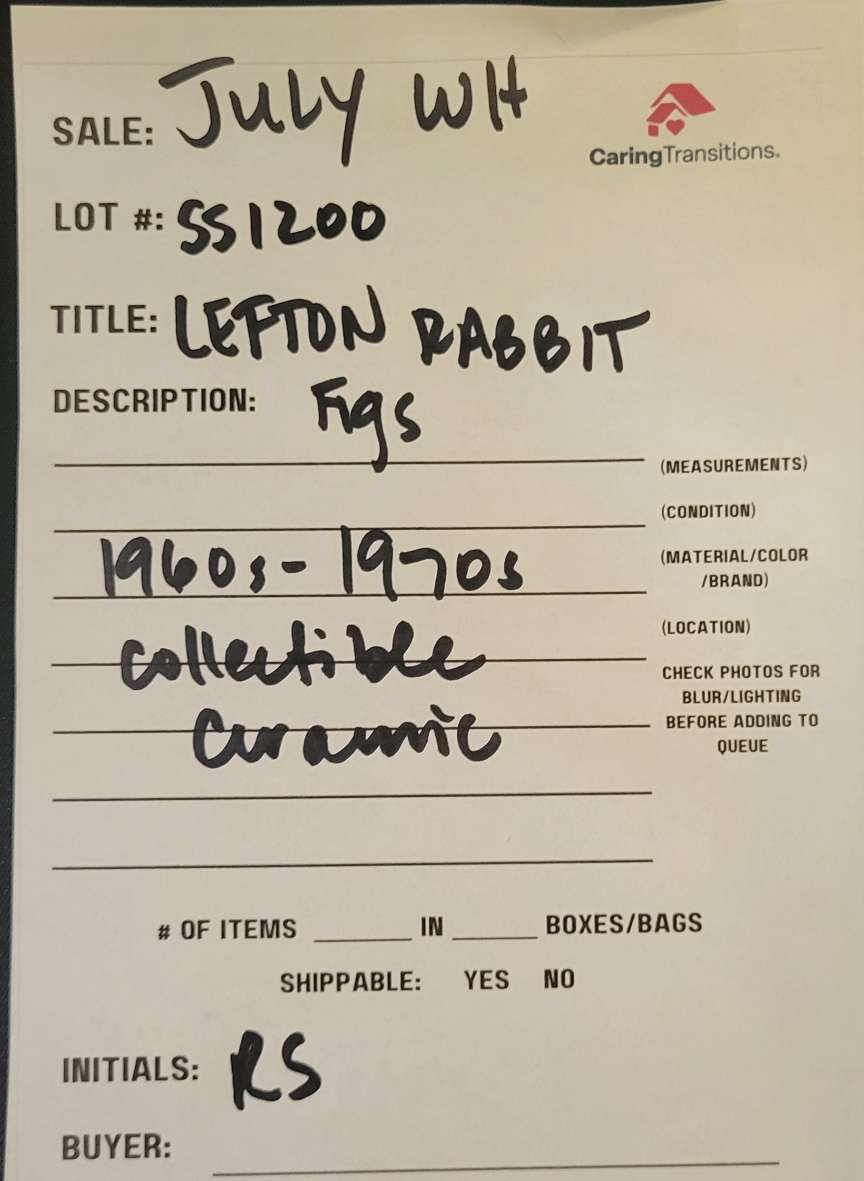 SALE: JULY WH
CaringTransitions.
LOT #: SS1200
TITLE: LEFTON RABBIT
DESCRIPTION: Figs
(MEASUREMENTS)
(CONDITION)
1960s - 1970s
(MATERIAL/COLOR
/BRAND)
(LOCATION)
collectible
CHECK PHOTOS FOR
BLUR/LIGHTING
BEFORE ADDING TO
QUEUE
Ceramic
# OF ITEMS ______ IN ______ BOXES/BAGS
SHIPPABLE: YES NO
INITIALS: RS
BUYER: